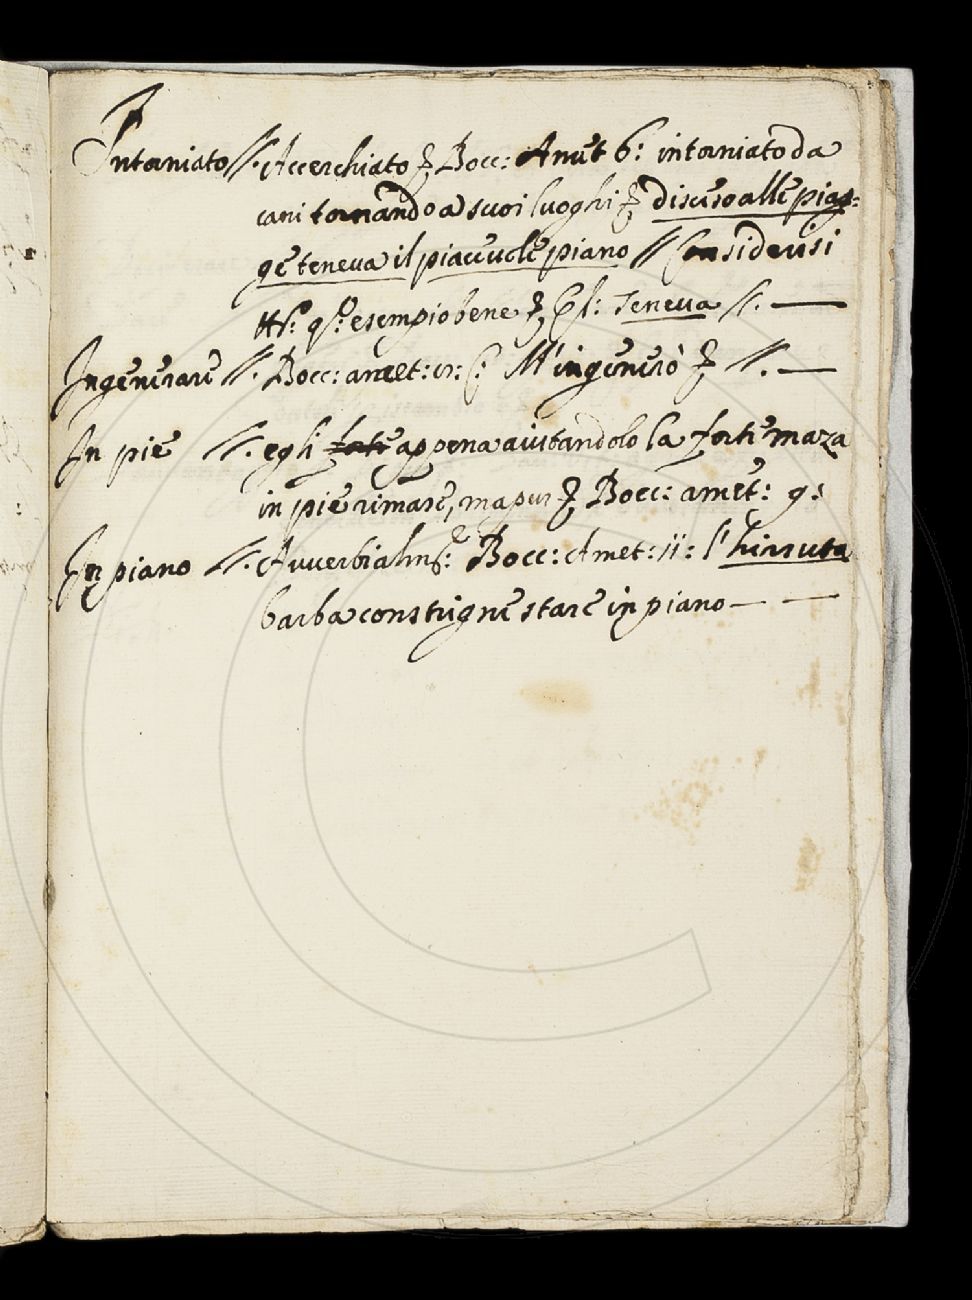 Intorniato //. Accerchiato & Bocc: Amet 6: intorniato da
cani tornando a suoi luoghi & disceso alle piag=
ge teneva il piacevole piano // Considerisi
q.o esempio bene & Teneva //. —
Ingenerare //. Bocc: amet: M'ingenerò & //. —
In pie //. egli forte appena aiutandolo la forte maza
in pie rimase, ma pur & Bocc: amet: 9:
In piano //. Avverbialm.e: Bocc: Amet: 11: l'hirsuta
barba constrigne stare in piano — —